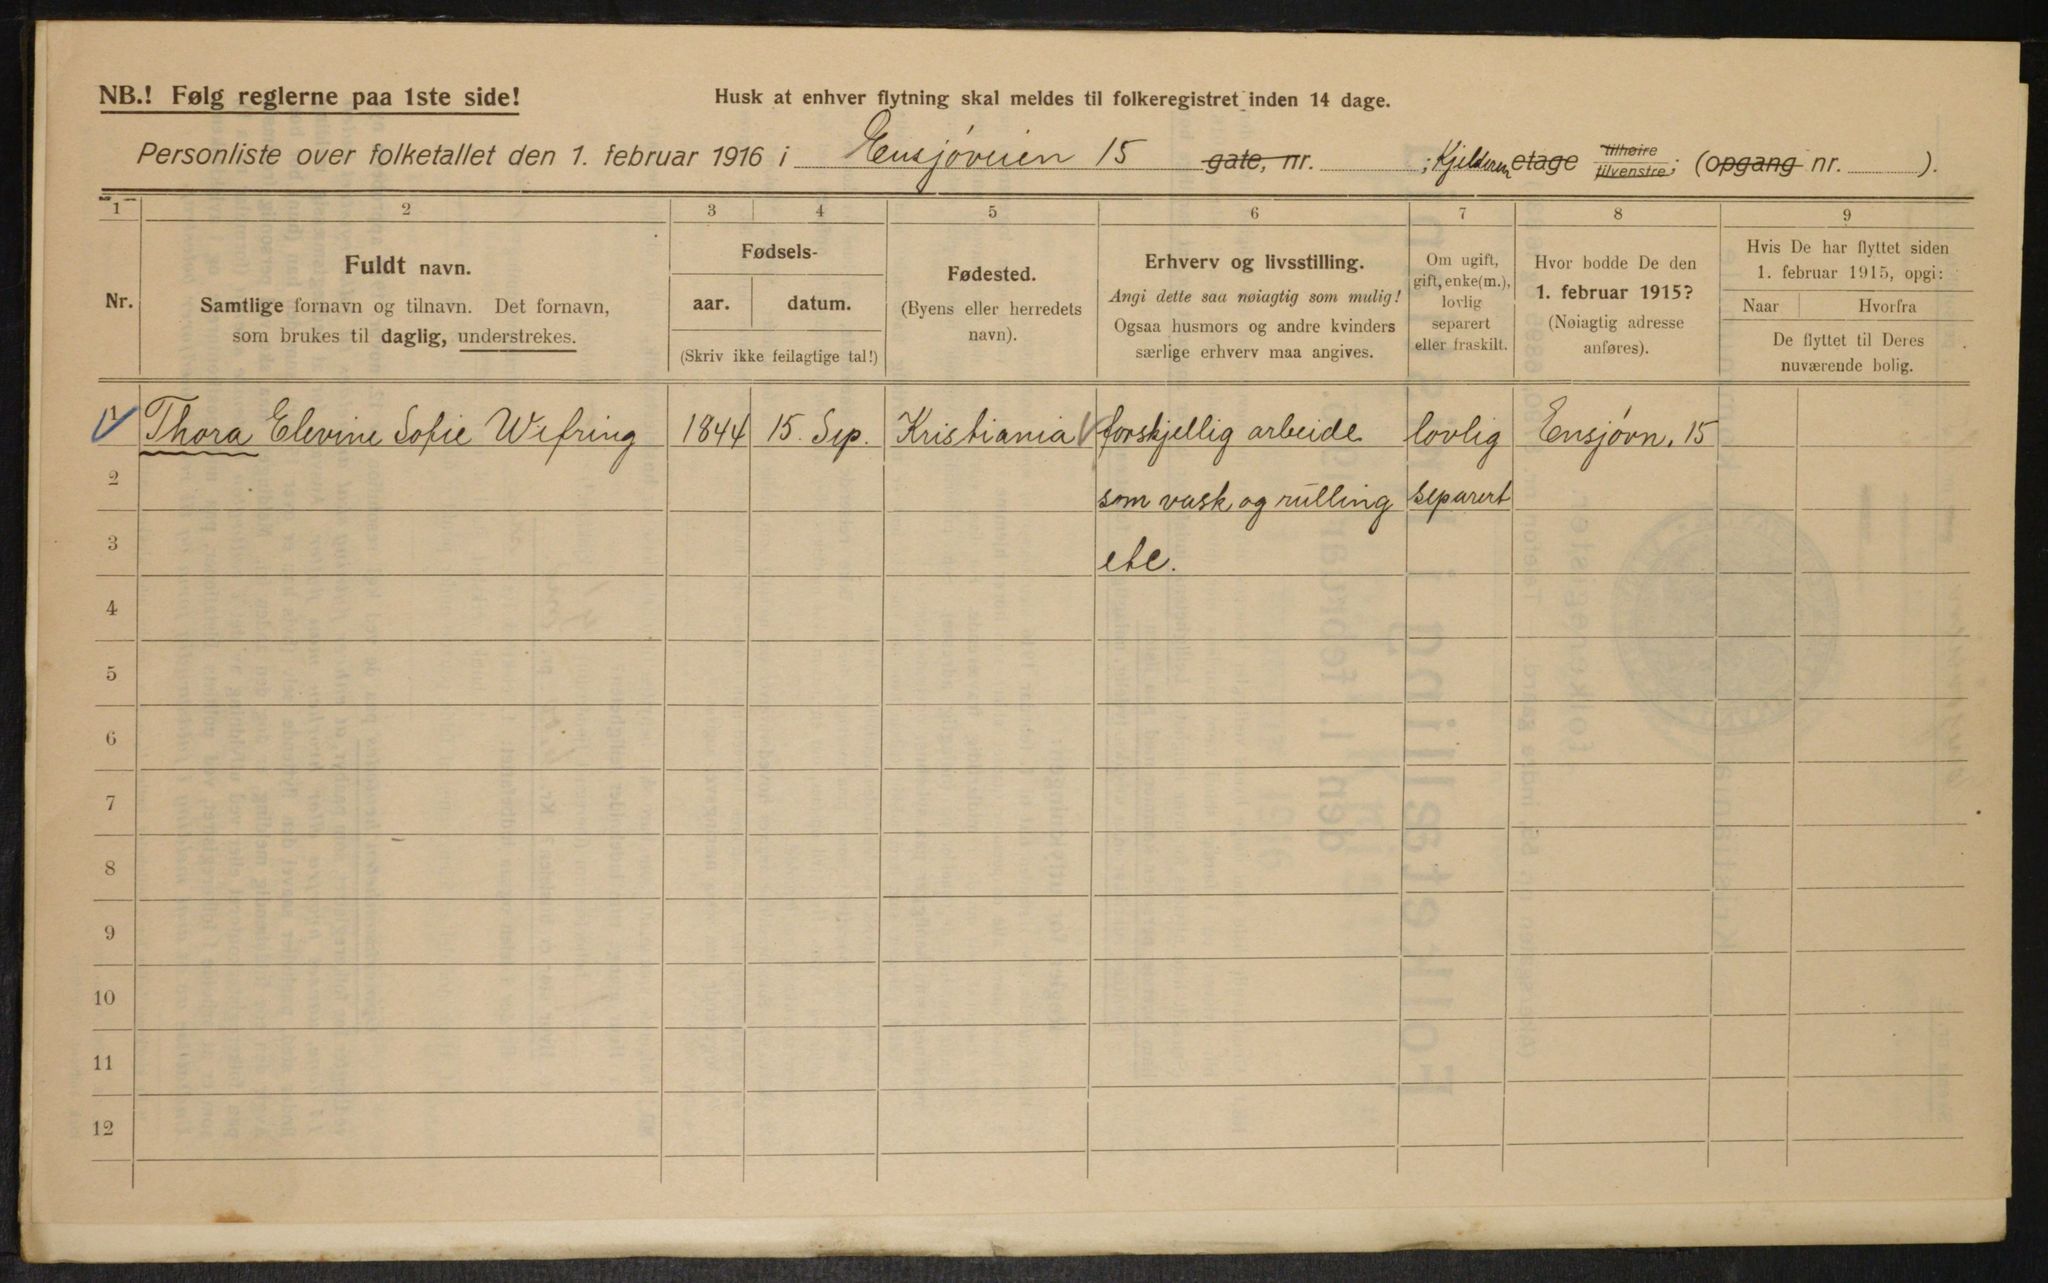 NB.! Følg reglerne paa 1ste side!
Husk at enhver flytning skal meldes til folkeregistret inden 14 dage.
Personliste over folketallet den 1. februar 1916 i Ensjøveien 15 gate, nr. ; Kjelderen etage tilhøire tilvenstre; (opgang nr. ).
1 2 3 4 5 6 7 8 9
Nr.
Fuldt navn.
Samtlige fornavn og tilnavn. Det fornavn,
som brukes til daglig, understrekes.
Fødsels-
aar. datum.
(Skriv ikke feilagtige tal!)
Fødested.
(Byens eller herredets
navn).
Erhverv og livsstilling.
Angi dette saa nøiagtig som mulig!
Ogsaa husmors og andre kvinders
særlige erhverv maa angives.
Om ugift,
gift, enke(m.),
lovlig
separert
eller fraskilt.
Hvor bodde De den
1. februar 1915?
(Nøiagtig adresse
anføres).
Hvis De har flyttet siden
1. februar 1915, opgi:
Naar Hvorfra
De flyttet til Deres
nuværende bolig.
1 Thora Elevine Sofie Wefring 1844 15. Sep. Kristiania forskjellig arbeide lovlig Ensjøvn. 15
2 som vask og rulling separert
3 etc.
4
5
6
7
8
9
10
11
12